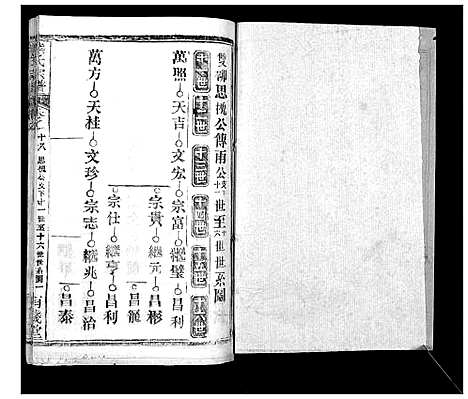 雙柳思槐公傳甫公支下十一世至十六世世系圖
十一世 十二世 十三世 十四世 十五世 十六世
萬照 天吉 文宏 宗富 繼璧 昌利
宗貴 繼元 昌彬
宗仕 繼亨 昌龍
昌利
萬方 天桂 文珍 宗志 繼兆 昌治
昌泰
氏宗譜
十八 思槐公支下十一世至十六世世系圖